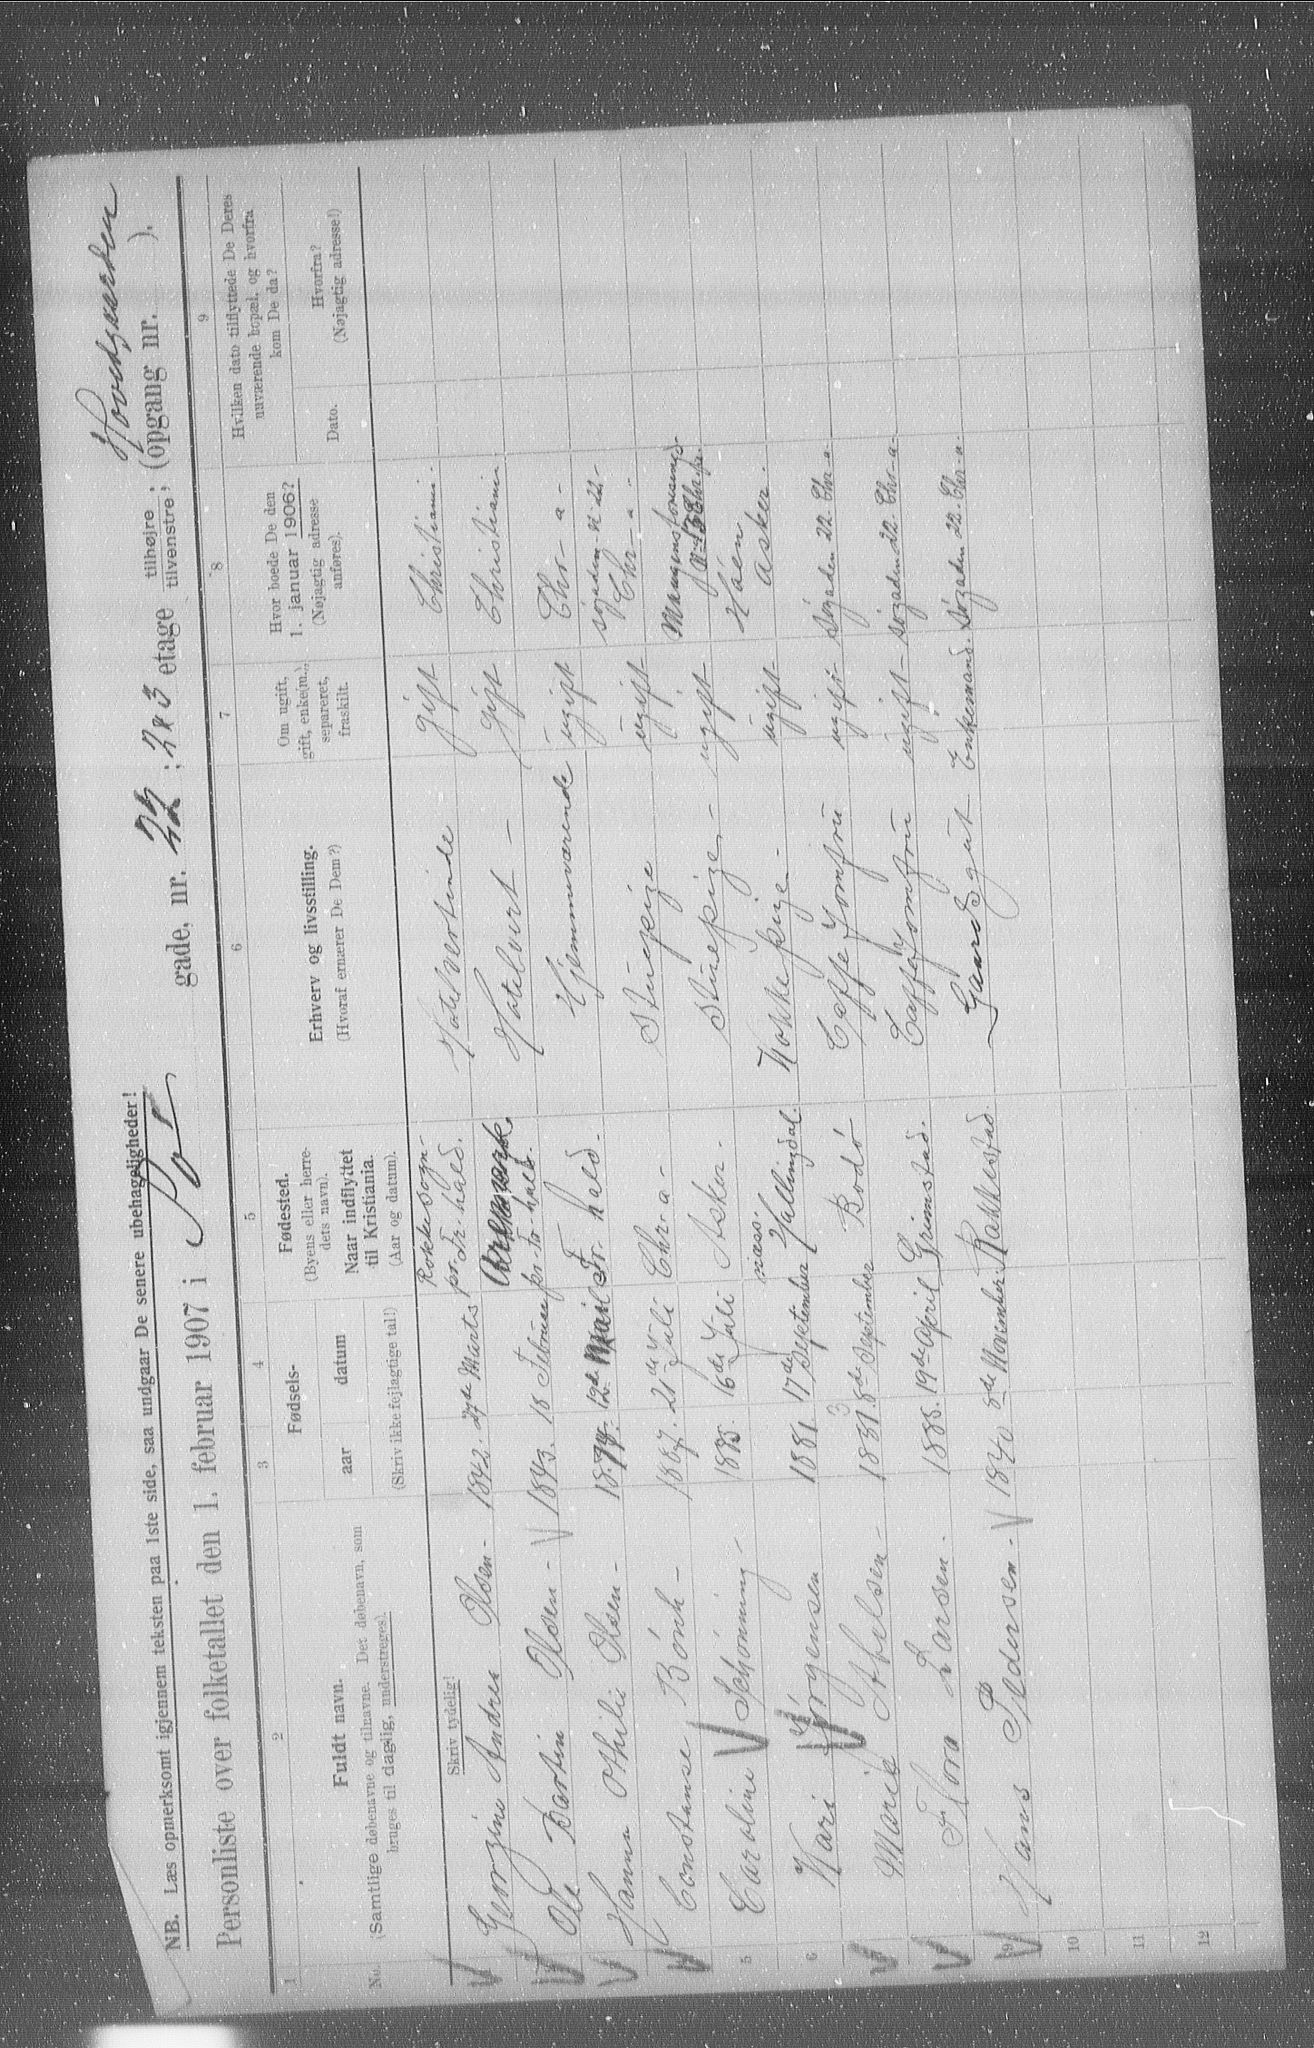 NB. Læs opmerksomt igjennem teksten paa 1ste side, saa undgaar De senere ubehageligheder!
Hovedgaarden
Personliste over folketallet den 1. februar 1907 i Sø gade, nr. 22 ; 2 & 3 etage tilhøjre, tilvenstre, (opgang nr. ).
1 2 3 4 5 6 7 8 9
No.
Fuldt navn.
(Samtlige døbenavne og tilnavne. Det døbenavn, som
bruges til daglig, understreges).
Fødsels-
aar datum
(Skriv ikke fejlagtige tal!)
Fødested.
(Byens eller herre-
dets navn).
Naar indflyttet
til Kristiania.
(Aar og datum).
Erhverv og livsstilling.
(Hvoraf ernærer De Dem?)
Om ugift,
gift, enke(m.),
separeret,
fraskilt.
Hvor boede De den
1. januar 1906?
(Nøjagtig adresse
anføres).
Hvilken dato tilflyttede De Deres
nuværende bopæl, og hvorfra
kom De da?
Dato.
Hvorfra?
(Nøjagtig adresse!)
Skriv tydelig!
Georgine Andrea Olsen - 1842. 27de Marts Rokke sogn - pr. Fr. hald. Hotelvertinde gift Christiania.
Ole Martin Olsen - 1843. 15 Februar pr. Fr. hald. Hotelvert - gift Christiania.
Hanna Othilie Olsen - 12de Fr. hald - Hjemmeværende ugift Chr - a -
Constanse Bönk - 1867. 21de Juli Chr - a - Stuepige ugift Søgaden 22 - Chr - a -
5 Caroline Schönning - 16de Juli Asker - Stuepige - ugift
6 Kari Jørgensen 1881 17de September næss. Hallingdal. Kokkepige - ugift Asker.
Marie Abelsen - 1881. 8de September Bodö Caffe Jomfru ugift - Søgaden 22. Chr - a.
Flora Larsen. 1885. 19de April Grimstad. Caffe Jomfru ugift - Søgaden 22. Chr - a -
9 Hans Pedersen - 1840 8de November Rakkestad. Gaardsgut Enkemand. Søgaden 22. Chr - a.
10
11
12